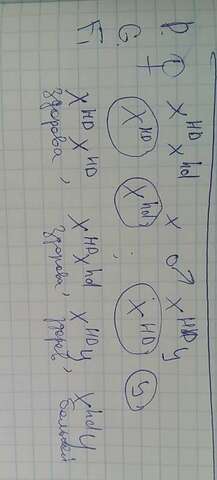 P. ♀ X^HD X^hd x ♂ X^HD y
G. X^HD, X^hd; X^HD, y,
F₁ X^HD X^HD, X^HD X^hd, X^HD y, X^hd y
здорова, здорова, здоров, больной